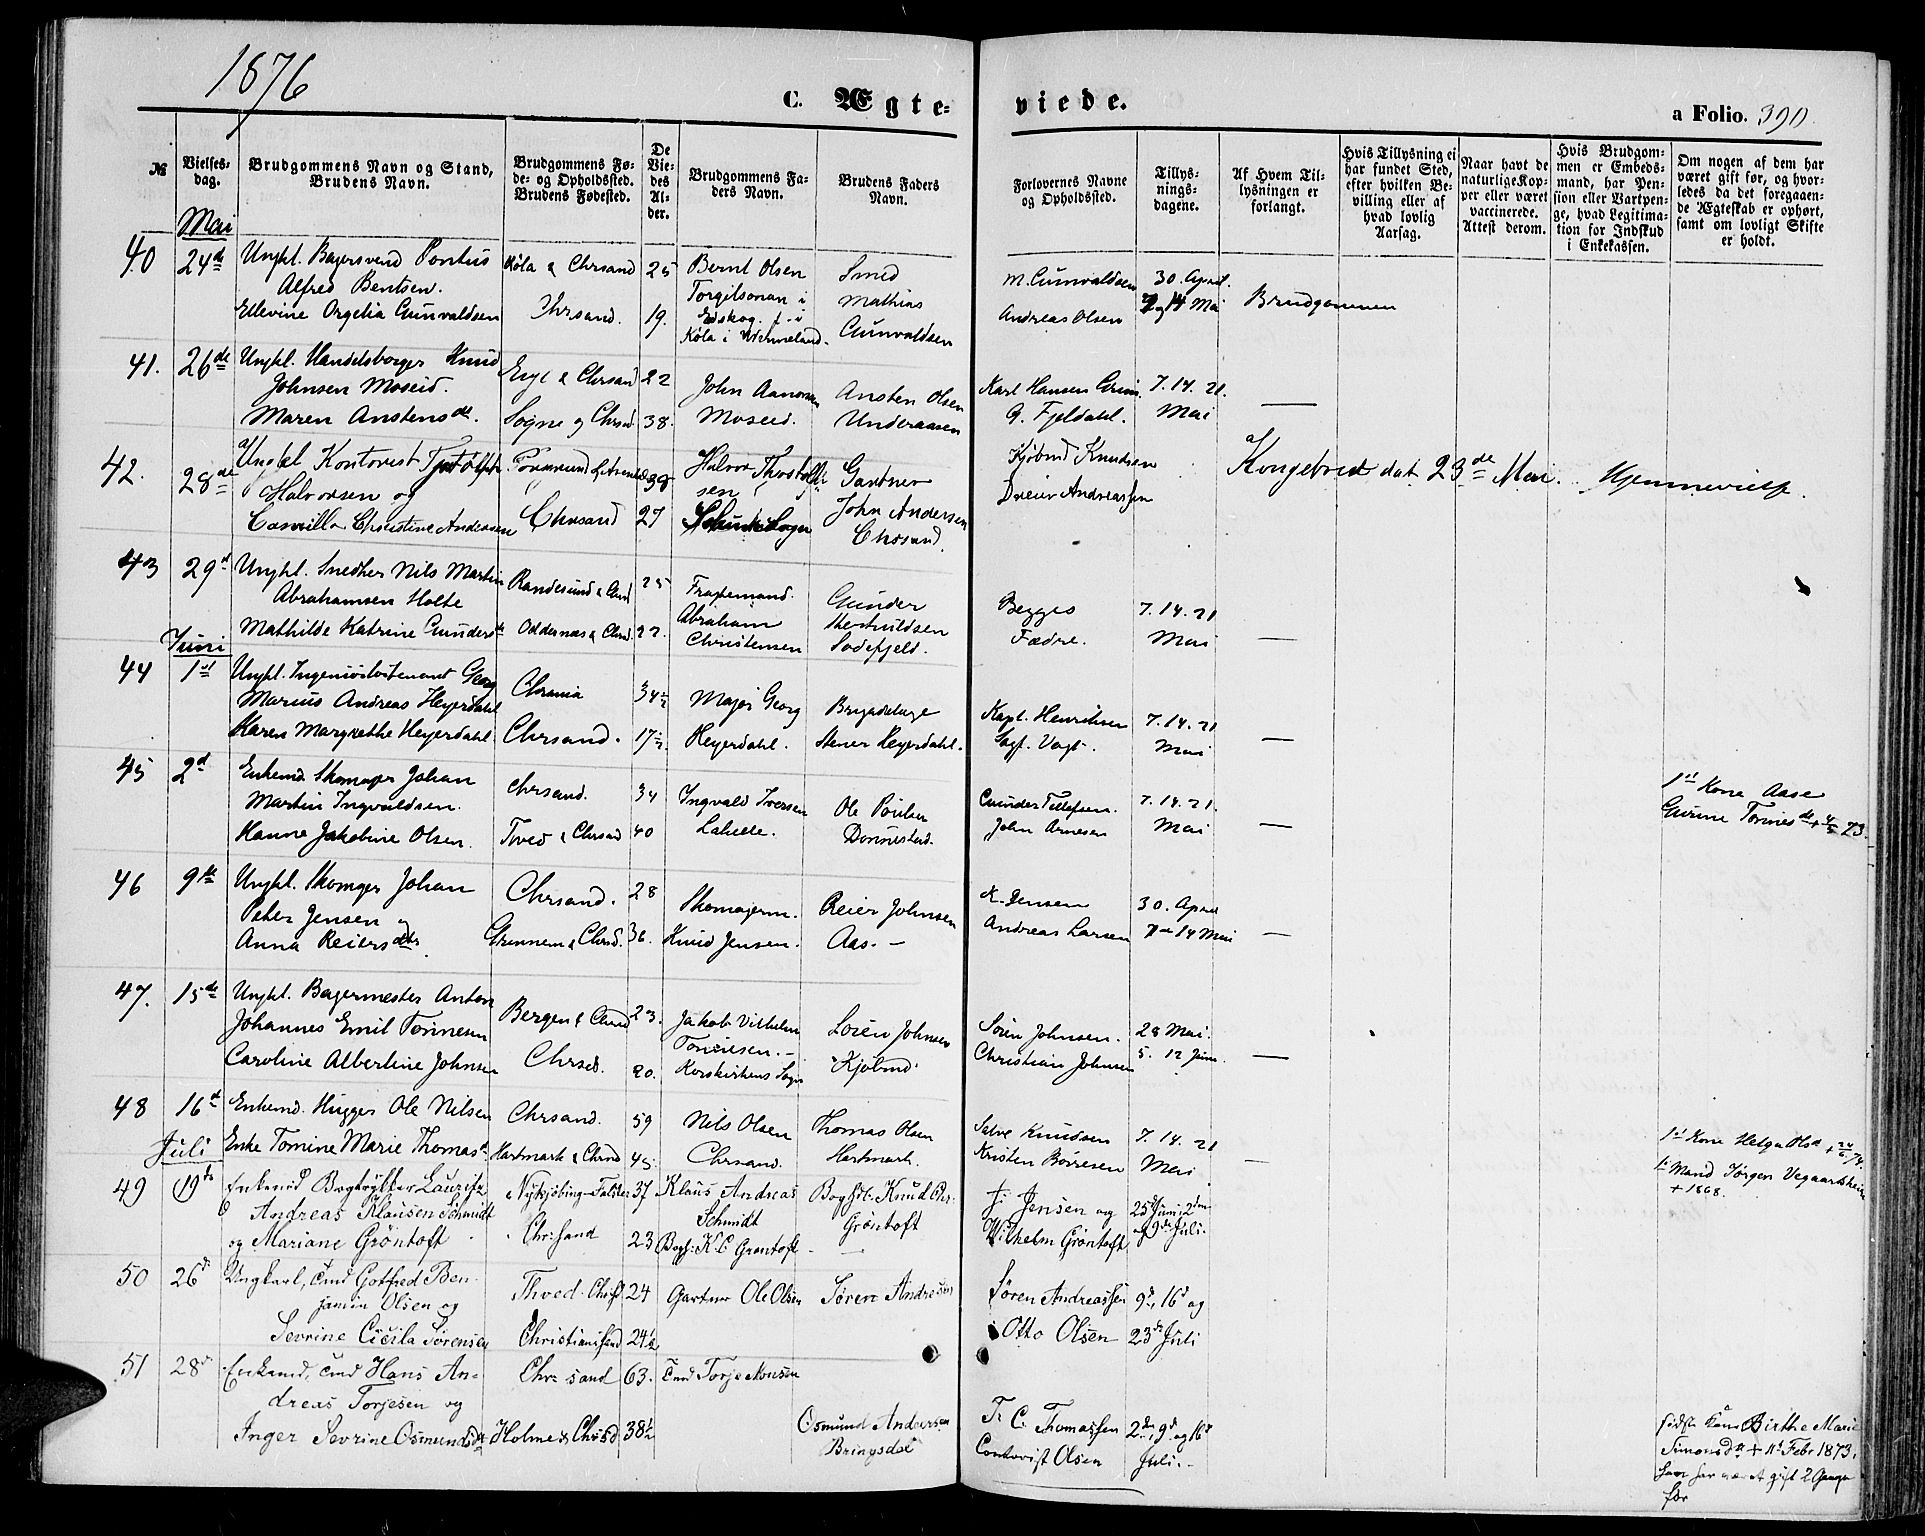 1876
C. Ægte-
viede.
a Folio. 390.
№
Vielses-
dag.
Brudgommens Navn og Stand,
Brudens Navn.
Brudgommens Fø-
de- og Opholdssted.
Brudens Fødested.
De
Vie-
des
Al-
der.
Brudgommens Fa-
ders Navn.
Brudens Faders
Navn.
Forlovernes Navne
og Opholdssted.
Tillys-
nings-
dagene.
Af Hvem Til-
lysningen er
forlangt.
Hvis Tillysning ei
har fundet Sted,
efter hvilken Be-
villing eller af
hvad lovlig
Aarsag.
Naar havt de
naturlige Kop-
per eller været
vaccinerede.
Attest derom.
Hvis Brudgom-
men er Embeds-
mand, har Pen-
sion eller Vartpen-
ge, hvad Legitima-
tion for Indskud
i Enkekassen.
Om nogen af dem har
været gift før, og hvor-
ledes da det foregaaen-
de Ægteskab er ophørt,
samt om lovligt Skifte
er holdt.
Mai
40 24de Ungkl. Bagersvend Pontus
Alfred Bentsen.
Ellevine Orgelia Gunvaldsen
Köla & Chrsand 25
Chrsand. 19.
Bernt Olsen
Torgilsonan i
Edskog
Köla i Wermeland.
Smed
Mathias
Gunvaldsen
M. Gunvaldsen
Andreas Olsen
30. April
7 & 14 Mai
Brudgommen
41. 26de Ungkl. Handelsborger Knud
Johnsen Moseid.
Maren Anstensdt.
& Chrsand 22
Sogne & Chrsd 38.
John Aanonsen
Moseid.
Ansten Olsen
Underaasen
Karl Hansen Grim
G. Fjeldahl.
7. 14. 21.
Mai
—
42. 28de Ungkl Kontorist
Halvorsen og
Camilla Christine Andersen
Chrsand 27
Halvor
sen
Gartner
John Andersen
Chrsand.
Kjøbmd Knudsen
Dreier Andreassen
Kongebrev dat 23de Mai. Hjemmevielse.
43 29d Ungkl. Snedker Nils Martin
Abrahamsen Holte
Mathilde Katrine Gundersdt
Randesund & Chrsd 25
Oddernæs & Chrsd. 22.
Fragtemand.
Abraham
Christensen
Gunder
Sodefjeld.
Begges
Fædre.
7. 14. 21
Mai
—
Juni
44 1st Ungkl. Ingeniörlöitenant Georg
Marius Andreas Heyerdahl
Karen Margrethe Heyerdahl.
Chrania 34½
Chrsand. 17½.
Major Georg
Heyerdahl.
Brigadelæge
Stener Heyerdahl.
Kapt. Henrichsen
Sagf. Vogt.
7. 14. 21
Mai
—
45 2d Enkemd. Skomager Johan
Martin Ingvaldsen.
Hanne Jakobine Olsen.
Chrsand. 34
Tved & Chrsand 40
Ingvald Iversen
Ole Poulsen
Donnestad.
Gunder Tellefsen.
John Arnesen
7. 14. 21.
Mai
—
1st Kone Aase
Gurine Tønnesdt + 4/2 73.
46 9de Ungkl. Skomager Johan
Peter Jensen og
Anna Reiersdtr
Chrsand. 28
& Chrsd. 36.
Skomagerm.
Knud Jensen.
Reier Johnsen
Aas. —
K. Jensen
Andreas Larsen
30. April
7 & 14 Mai
—
47. 15de Ungkl. Bagermester Anton
Johannes Emil Tønnesen
Caroline Albertine Johnsen
Bergen & Chrsd 23.
Chrsd. 20.
Jakob Vilhelm
Tønnesen. —
Korskirkens Sogn
Sören Johnsen
Kjöbmd.
Sören Johnsen.
Christian Johnsen
28 Mai.
5. 12 Juni.
—
48 16d Enkemd. Hugger Ole Nilsen
Enke Tomine Marie Thomasdt
Chrsand. 59
Hartmark & Chrsd 45.
Nils Olsen
Chrsand.
Thomas Olsen
Hartmark.
Salve Knudsen
Kristen Börresen
7. 14. 21
Mai
—
1st Kone Helga Olsdt + 24/6 74.
1ste Mand Jörgen Vegaardsheien
+ 1868.
Juli
49 19de Enkemd Bogtrykker Lauritz
Andreas Klausen Schmidt
og Mariane Grøntoft
Nykjøbing-Falster 37
Chr: sand 23
Klaus Andreas
Schmidt
Bogh: K C Grøntoft
Boghdl: Knud Chr.
Grøntoft
J: Jensen og
Wilhelm Grøntoft
25de Juni, 2den
og 9de Juli.
50 26de Ungkarl, Gotfred Ben-
jamin Olsen og
Sevrine Cicilia Sørensen
Thved. Chrs 24
Christiansand 24½
Gartner Ole Olsen
Søren Andresen
Søren Andreassen
Otto Olsen
9de, 16de og
23de Juli
51 28de Enkemd, Hans An-
dreas Torjesen og
Inger Sevrine Osmundsdt
Chr: sand 63.
Holme & Chrsd 38½
Torje Monsen
Osmund Andersen
Bringsdal
T. C. Thomassen
Contorist Olsen
2den, 9de og 16de
Juli. —
sidste Kone Birthe Marie
Simonsdtr + 11te Febr 1873,
har været gift 2 Gange
før